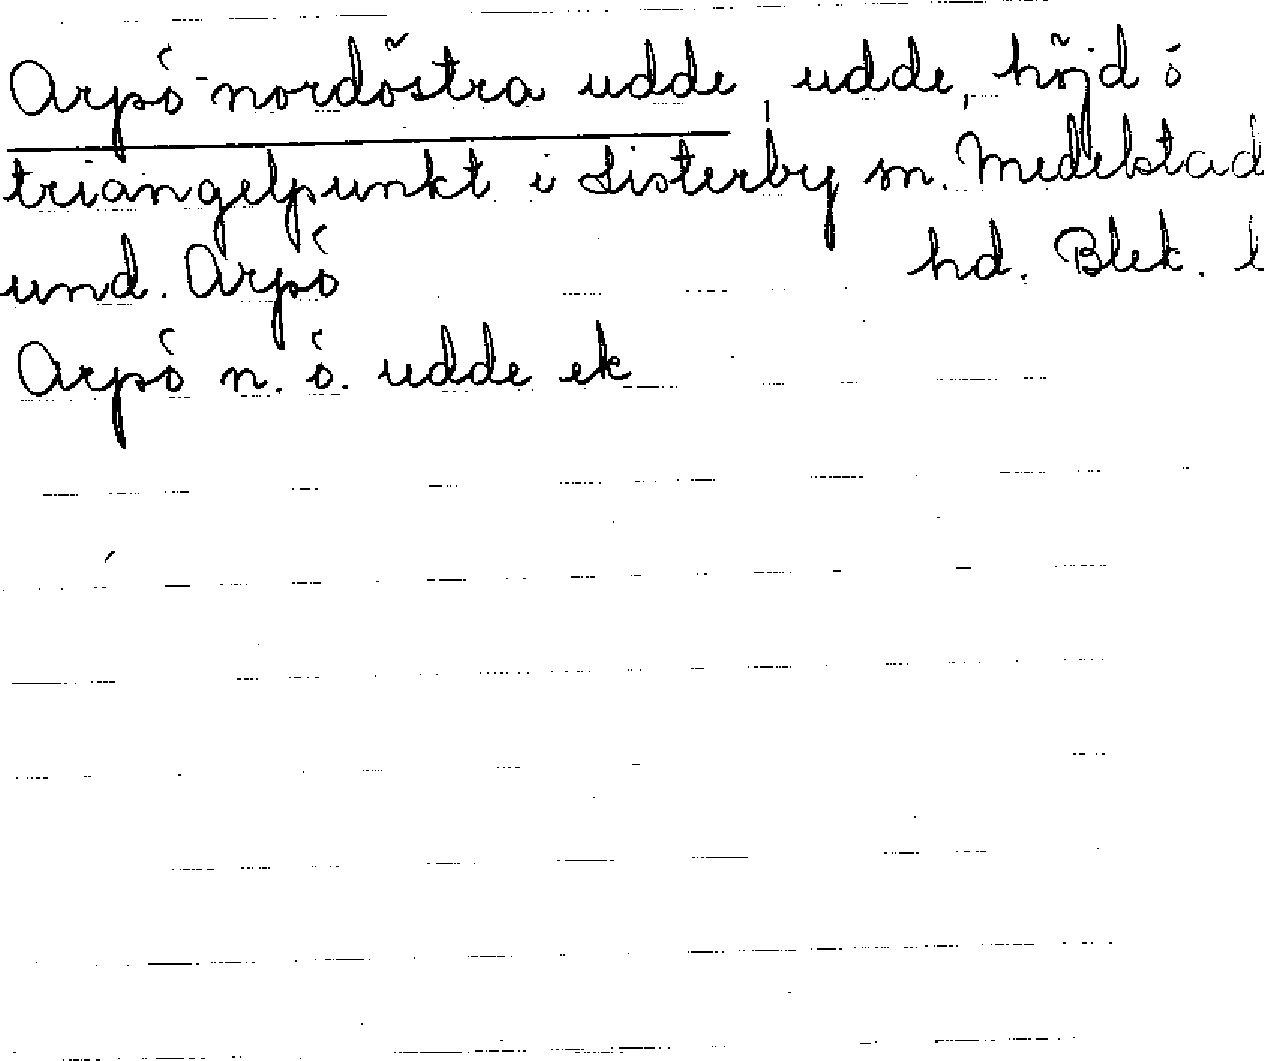 Arpö nordöstra udde udde, höjd ö
triangelpunkt i Listerby sn. Medelstad
und. Arpö hd. Blek. l
Arpö n. ö. udde ek